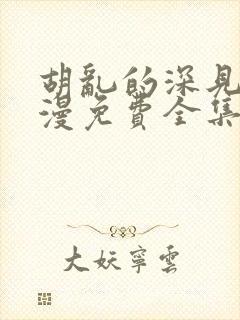 胡亂的深見
漫免費全集
大妖寧雲